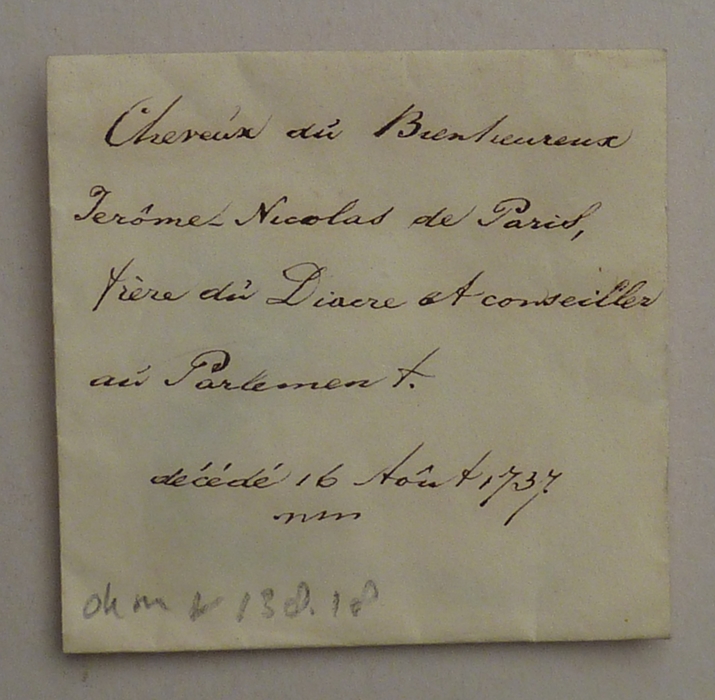 Cheveux du Bienheureux
Jerôme-Nicolas de Paris,
frère du Diacre et conseiller
au Parlement.
décédé 16 Août 1737.
okm v 138.18